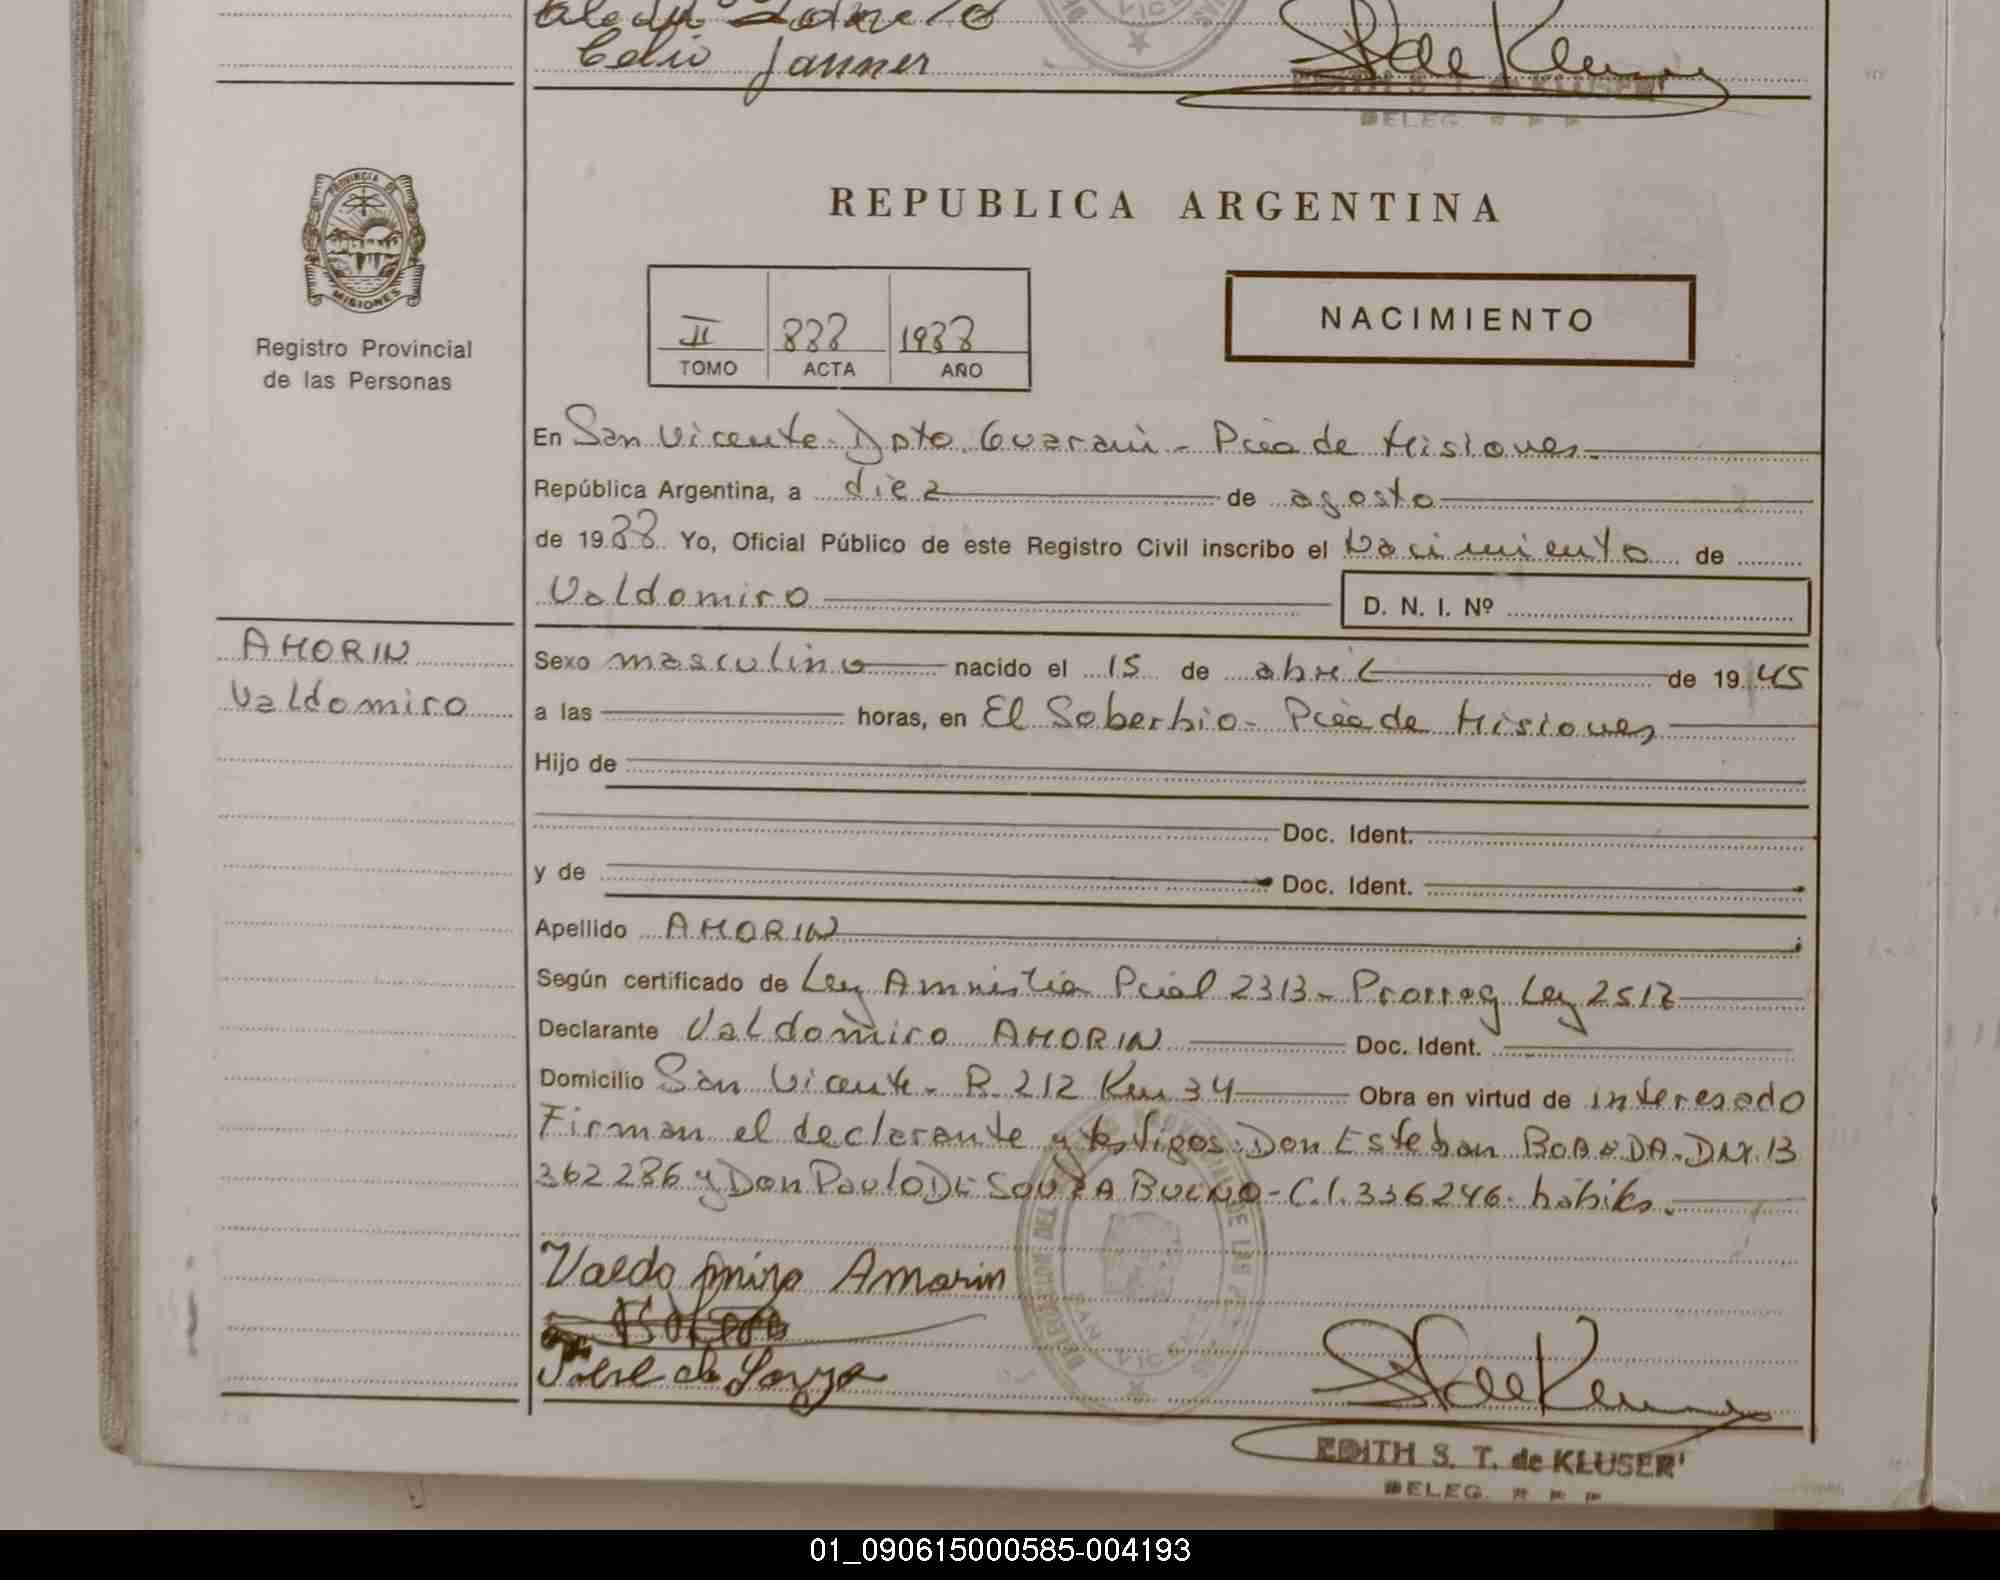 Celio Janner
EDITH S. T. de KLUSER
DELEG.
PROVINCIA DE
MISIONES
Registro Provincial
de las Personas
REPUBLICA ARGENTINA
II 888 1988
TOMO ACTA AÑO
NACIMIENTO
En San Vicente - Dpto. Guaraní - Pcia de Misiones.
República Argentina, a diez de agosto
de 1988. Yo, Oficial Público de este Registro Civil inscribo el Nacimiento de
Valdomiro D. N. I. Nº
AMORIN
Valdomiro
Sexo masculino nacido el 15 de abril de 1945
a las horas, en El Soberbio - Pcia de Misiones
Hijo de
Doc. Ident.
y de Doc. Ident.
Apellido AMORIN
Según certificado de Ley Amnistia Pcial 2313 - Prorrog Ley 2518
Declarante Valdomiro AMORIN Doc. Ident.
Domicilio San Vicente - R. 212 Km 34 Obra en virtud de interesado
Firman el declarante y testigos: Don Esteban DNI. 13
362286 y Don Paulo DE SOUZA BUENO - C.I. 336246 - hábiles.
Valdo miro Amorin
de Souza
SAN VICENTE
EDITH S. T. de KLUSER
DELEG.
01_090615000585-004193